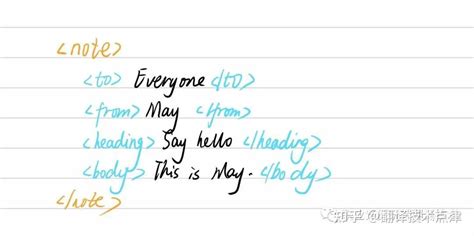 <note>
<to> Everyone </to>
<from> May </from>
<heading> Say hello </heading>
<body> This is May. </body>
</note>
知乎 @翻译技术点津